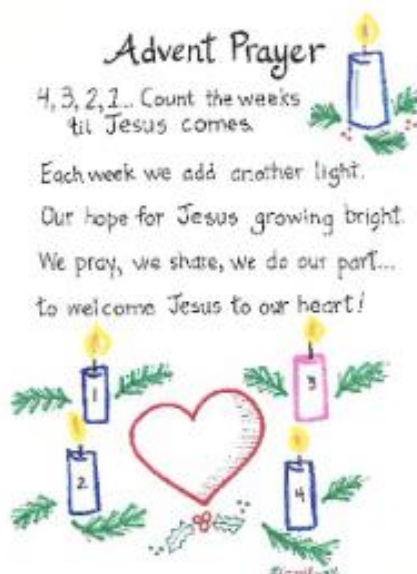 Advent Prayer
4, 3, 2, 1... Count the weeks
til Jesus comes.
Each week we add another light.
Our hope for Jesus growing bright.
We pray, we share, we do our part...
to welcome Jesus to our heart!
1
3
2
4